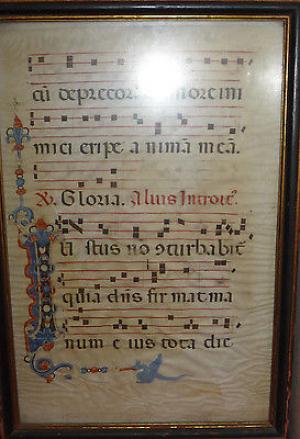 cũ deprecor timore ini
mici eripe a nimã meã.
℣. Gloria. Alius Introit᷒.
Iu stus nõ ↄturbabit̃
quia dñs fir mat ma
num e ius tota die